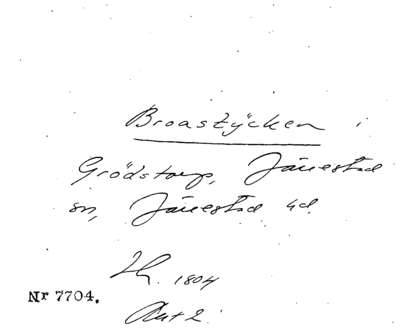 Broastycken i
Grödstorp, Järrestad
sn, Järrestad hd.
Lh. 1804
Nr 7704.
Akt 2